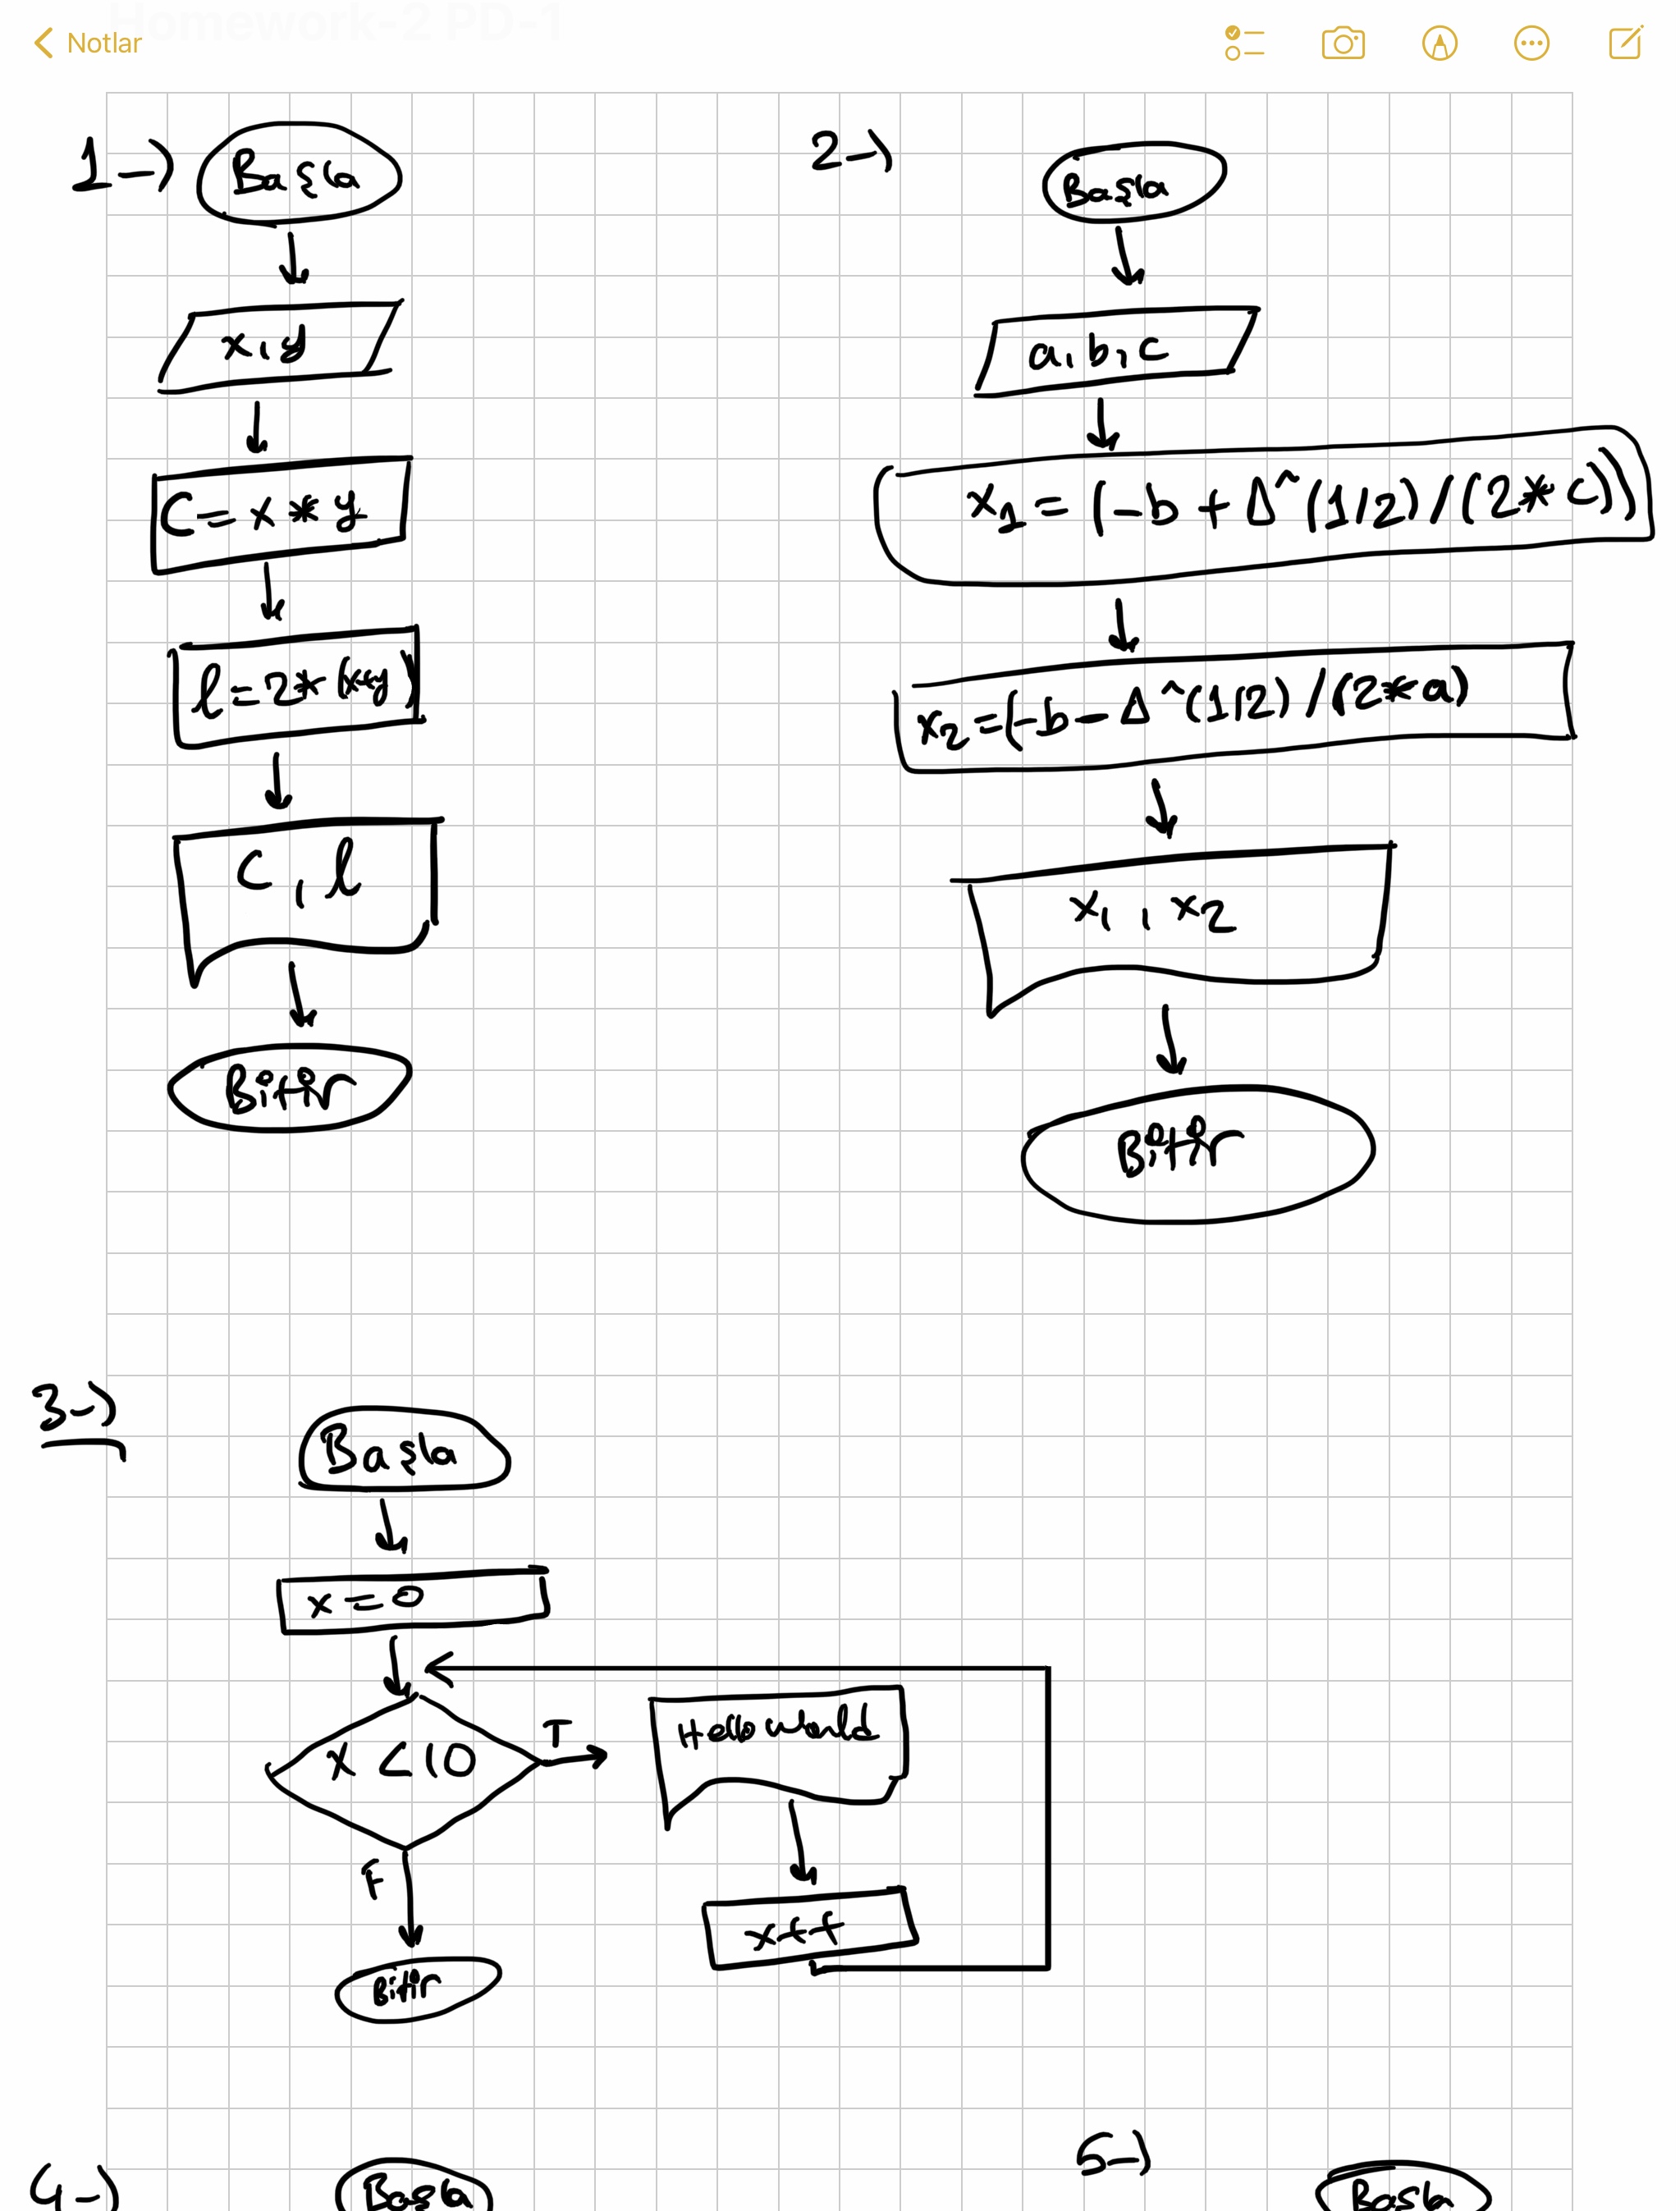 Homework-2 PD-1
Notlar
1-)
Başla
x, y
C = x * y
l = 2 * (x+y)
C, l
Bitir
2-)
Başla
a, b, c
x1 = (-b + Δ^(1/2) / (2 * c))
x2 = (-b - Δ^(1/2) / (2 * a)
x1, x2
Bitir
3-)
Başla
x = 0
x < 10
T
Hello world
x++
F
Bitir
4-)
Başla
5-)
Başla